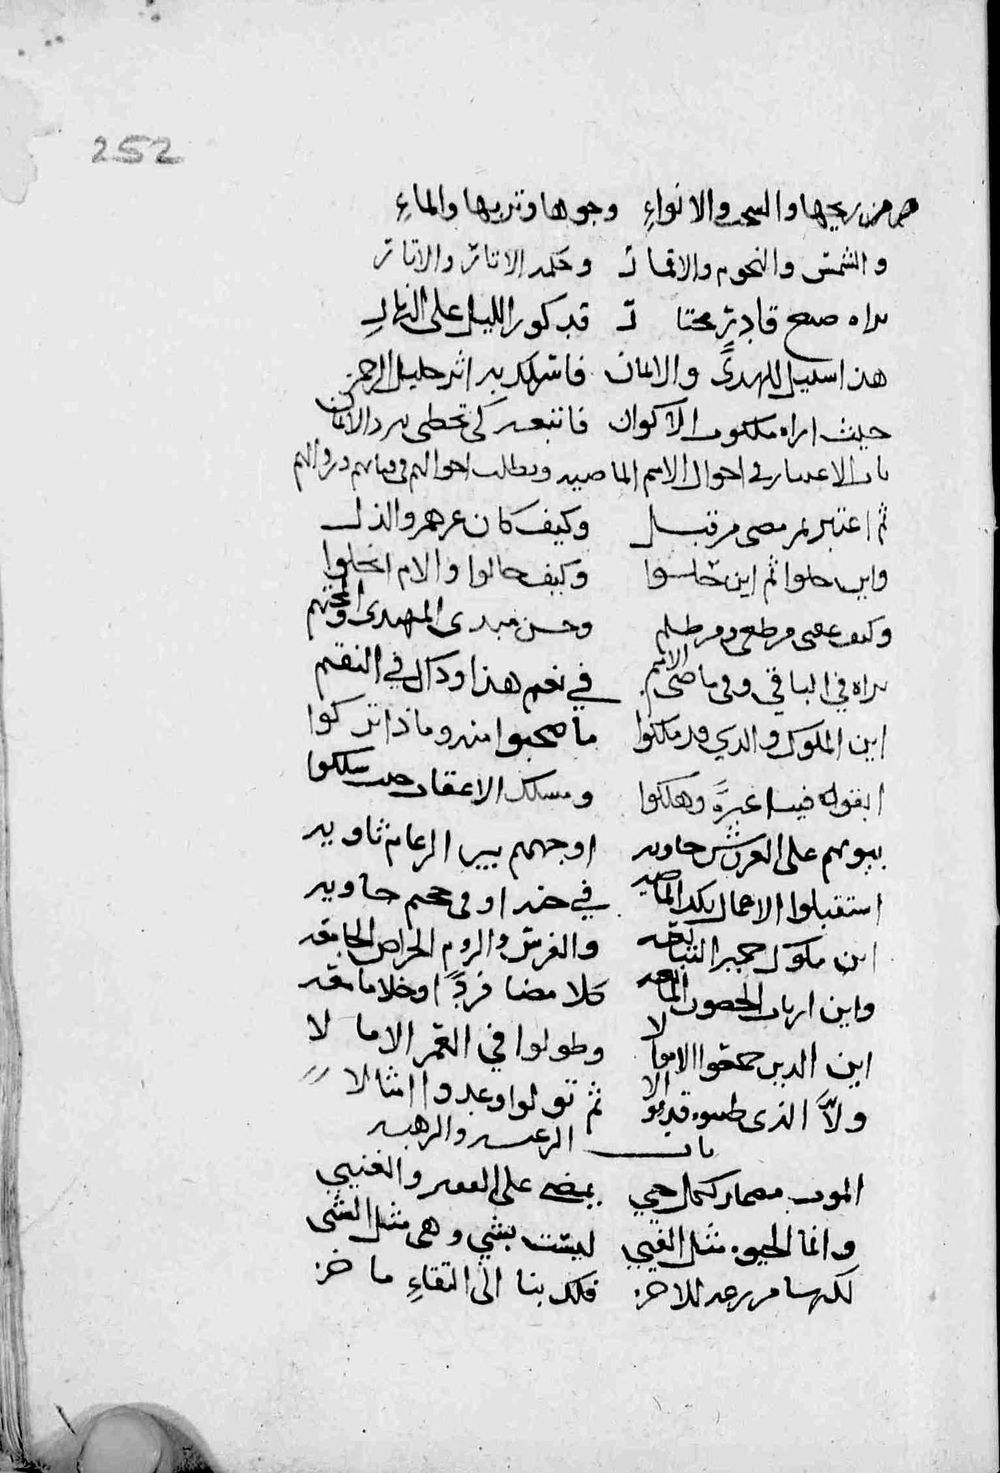 252
من ريحها والسحب والانواءِ وجوها وتربها والماءِ
والشمس والنجوم والاقمار وحكمه الاثار والاثار
براه صنع قادرٍ مختار قد كور الليل على النهارِ
هذا سبيل للهدىً والايمان فاسلكه اثر خليل الرحمن
حيث اراه ملكوت الاكوان فاتبعه كي تحظى ببرد الايمان
باب الاعتبار في احوال الامم الماضيه وتطلب احوالهم في
ثم اعتبر بمن مضى من قبل وكيف كان عزهم والذل
واين حلوا ثم اين خلوا وكيف حالوا والام
وكيف عقبى من طغى ومن ظلم وحسن مبدى المهتدى
براه في الباقي وفي ماضى الامم في نعم هذا وذاك في النقم
اين الملوك والذي قد ملكوا ما صحبوا منه وماذا تركوا
ابقوه فينا عبرةً وهلكوا ومسلك الاعقاب حيث سلكوا
بيوتهم على العروش خاويه اوجههم بين الرغام ثاويه
استقبلوا الاعمال تلك الماضيه في جنه او في جحيم حاويه
اين ملوك حمير التبابعه والفرس والروم الجامعه
واين ارباب الحصون المانعه كلا مضا فردًا وخلا ما معه
اين الذين حققوا الاموالا وطولوا في العمر الامالا
ولاّ الذى قد توالا ثم تولوا وغدوا امثالا
باب الرغبه والرهبه
الموت مضمار لكل حي يمضي على الفقير والغنيي
وانما الحيوه مثل الفيي ليست بشي وهى مثل الشي
لكنها مزرعه للاخره فلك بنا الى التقاءِ ماخره